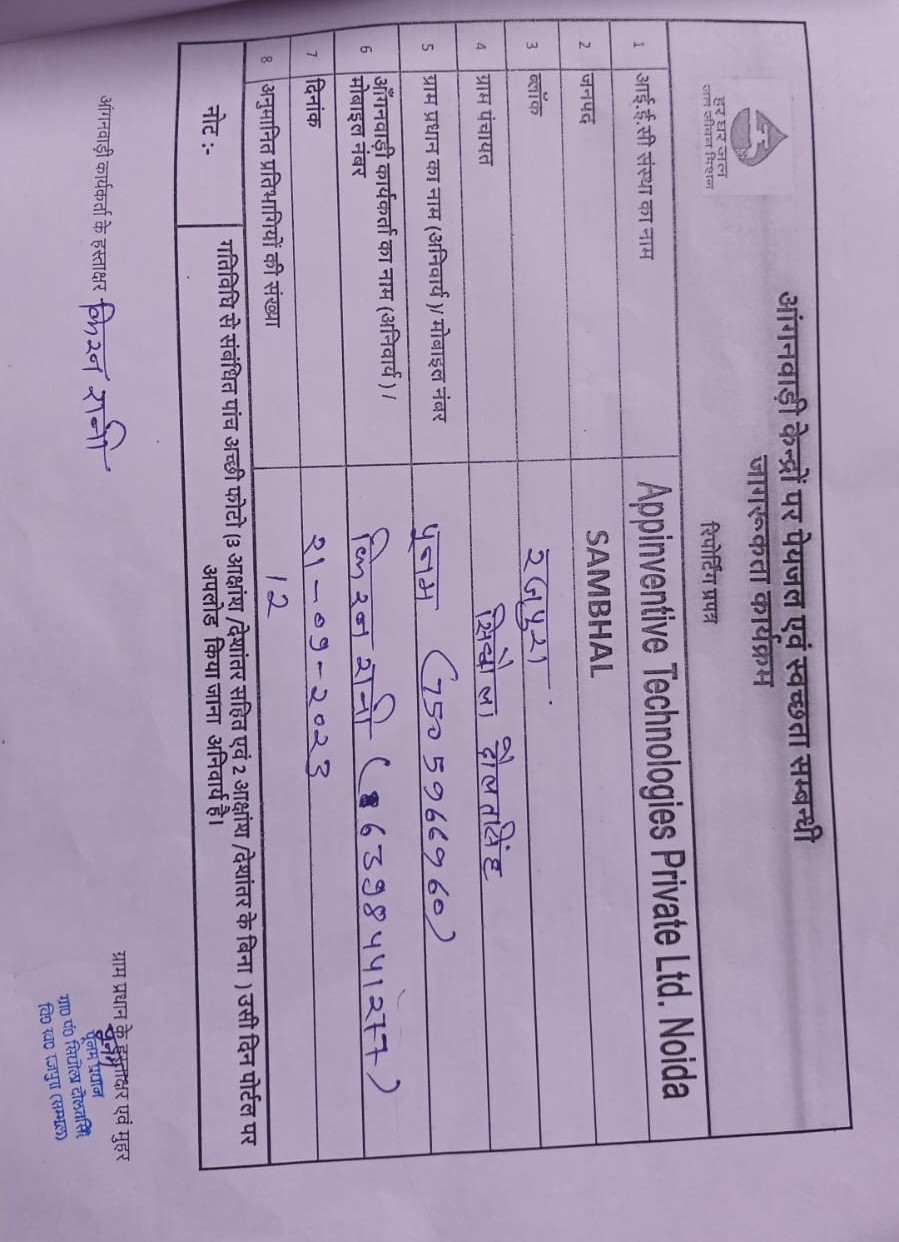 हर घर जल
जल जीवन मिशन
आंगनवाड़ी केन्द्रों पर पेयजल एवं स्वच्छता सम्बन्धी
जागरूकता कार्यक्रम
रिपोर्टिंग प्रपत्र
1 आई.ई.सी संस्था का नाम Appinventive Technologies Private Ltd. Noida
2 जनपद SAMBHAL
3 ब्लॉक रजपुरा
4 ग्राम पंचायत सिधौला दौलतसिंह
5 ग्राम प्रधान का नाम (अनिवार्य )/ मोबाइल नंबर पुनम (7505966960)
6 आँगनवाड़ी कार्यकर्ता का नाम (अनिवार्य ) /
मोबाइल नंबर किरन रानी (6398441277)
7 दिनांक २१-०९-२०२३
8 अनुमानित प्रतिभागियों की संख्या 12
नोट :- गतिविधि से संबंधित पांच अच्छी फोटो (3 आक्षांश /देशांतर सहित एवं 2 आक्षांश /देशांतर के बिना ) उसी दिन पोर्टल पर
अपलोड किया जाना अनिवार्य है।
आंगनवाड़ी कार्यकर्ता के हस्ताक्षर किरन रानी
ग्राम प्रधान के हस्ताक्षर एवं मुहर
पुनम
पूनम प्रधान
ग्रा० पं० सिधौला दौलतसिंह